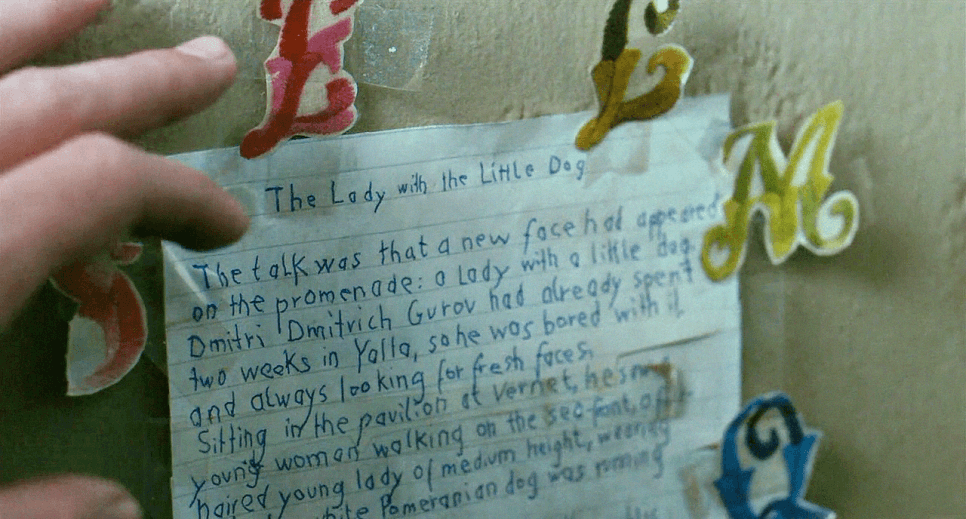 The Lady with the Little Dog
The talk was that a new face had appeared
on the promenade: a lady with a little dog.
Dmitri Dmitrich Gurov had already spent
two weeks in Yalla, so he was bored with it,
and always looking for fresh faces.
Sitting in the pavilion at Vernet, he
young woman walking on the sea-font, a
haired young lady of medium height, wearing
white Pomeranian dog was running
M